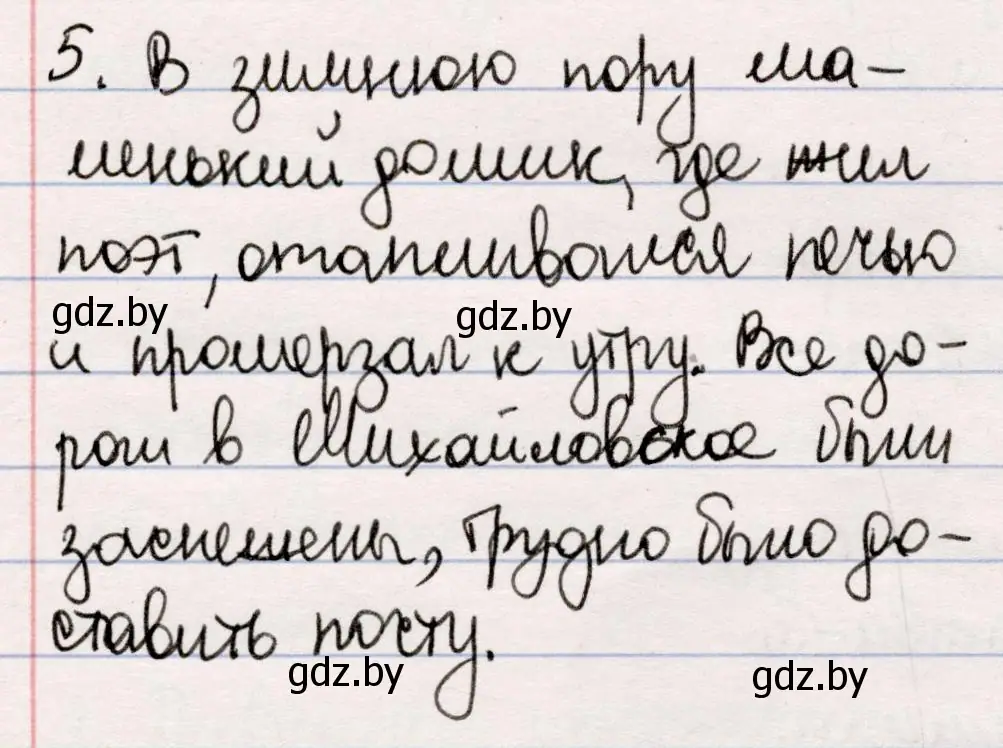 5. В зимнюю пору ма-
ленький домик, где жил
поэт, отапливался печью
gdz.by gdz.by
и промерзал к утру. Все до-
роги в Михайловское были
заснежены, трудно было до-
ставить почту.
gdz.by gdz.by